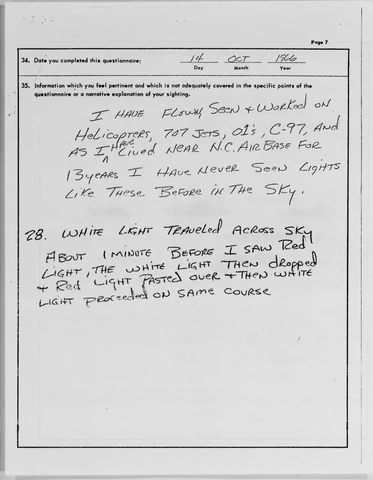 Page 7
34. Date you completed this questionnaire: 14 OCT 1966
Day Month Year
35. Information which you feel pertinent and which is not adequately covered in the specific points of the
questionnaire or a narrative explanation of your sighting.
I HAVE FLOWN, SEEN & WORKED ON
HELICOPTERS, 707 JETS, O1's, C-97, AND
AS I HAVE LIVED NEAR N.C. AIR BASE FOR
13 YEARS I HAVE NEVER SEEN LIGHTS
LIKE THESE BEFORE IN THE SKY.
28. WHITE LIGHT TRAVELED ACROSS SKY
ABOUT 1 MINUTE BEFORE I SAW RED
LIGHT, THE WHITE LIGHT THEN DROPPED
& RED LIGHT PASTED OVER & THEN WHITE
LIGHT PROCEEDED ON SAME COURSE